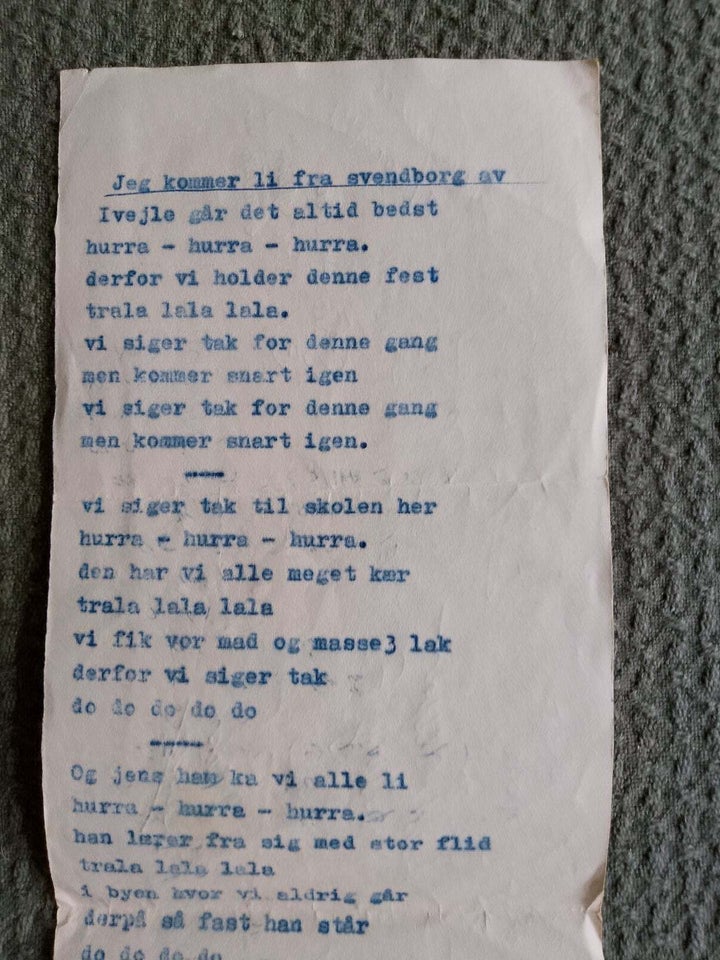 Jeg kommer li fra svendborg av
Ivejle går det altid bedst
hurra - hurra - hurra.
derfor vi holder denne fest
trala lala lala.
vi siger tak for denne gang
men kommer snart igen
vi siger tak for denne gang
men kommer snart igen.
----
vi siger tak til skolen her
hurra - hurra - hurra.
den har vi alle meget kær
trala lala lala
vi fik vor mad og masse3 lak
derfor vi siger tak
do do do do do
-----
Og jens ham ka vi alle li
hurra - hurra - hurra.
han lærer fra sig med stor flid
trala lala lala
i byen hvor vi aldrig går
derpå så fast han står
do do do do